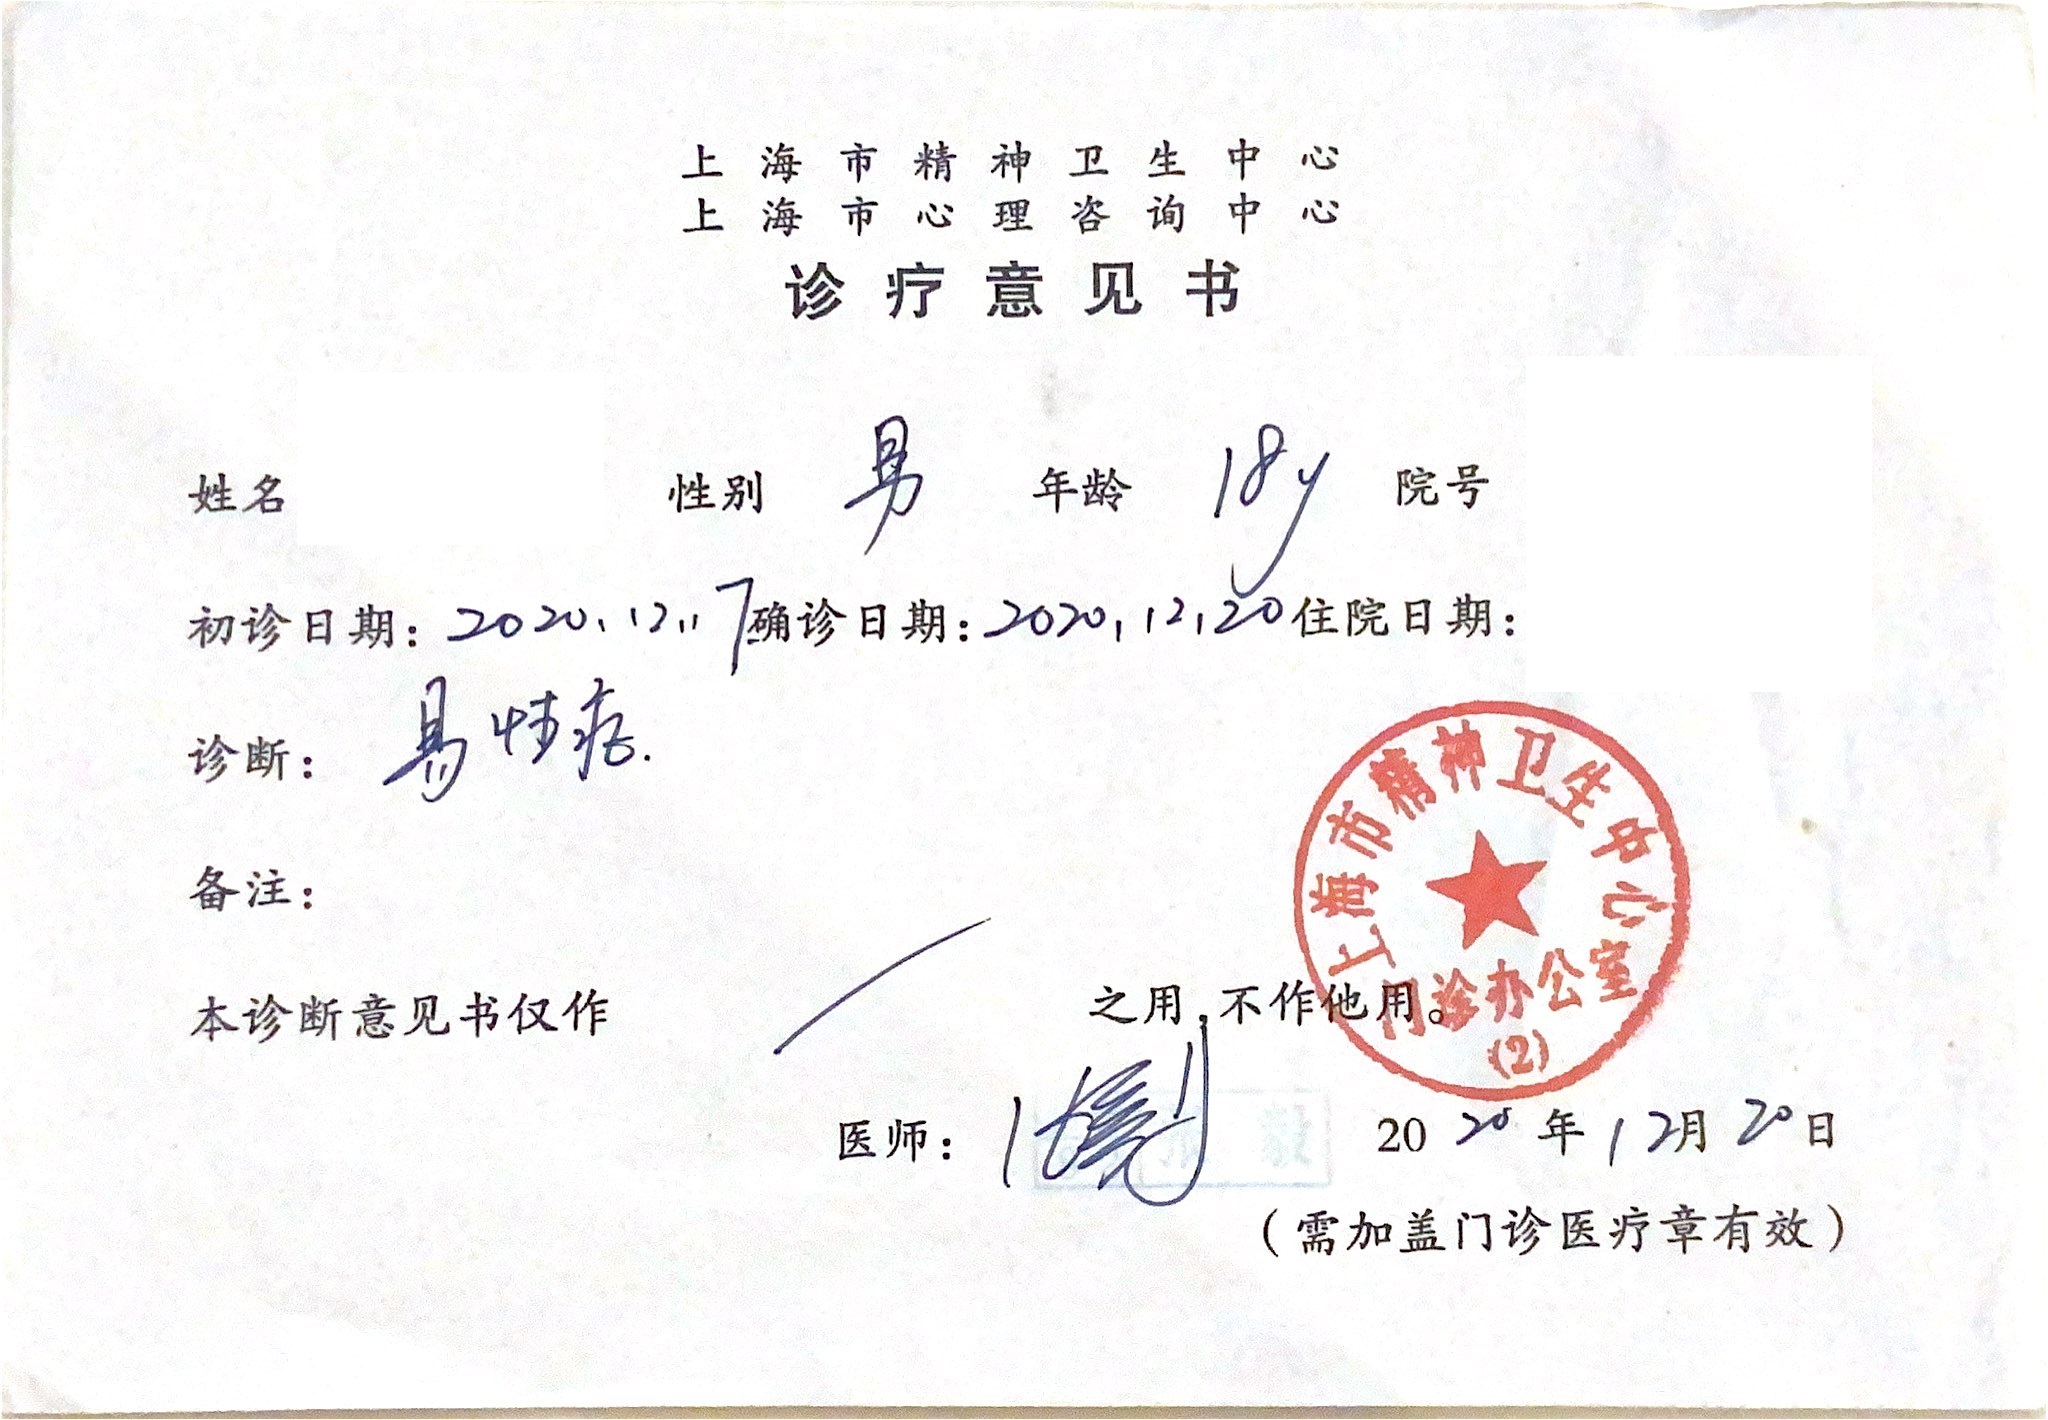 上海市精神卫生中心
上海市心理咨询中心
诊疗意见书
姓名 性别 男 年龄 18y 院号
初诊日期: 2020.12.17 确诊日期: 2020.12.20 住院日期:
诊断: 易性症.
备注:
本诊断意见书仅作 之用,不作他用。
上海市精神卫生中心
门诊办公室
(2)
医师: 2020年12月20日
(需加盖门诊医疗章有效)